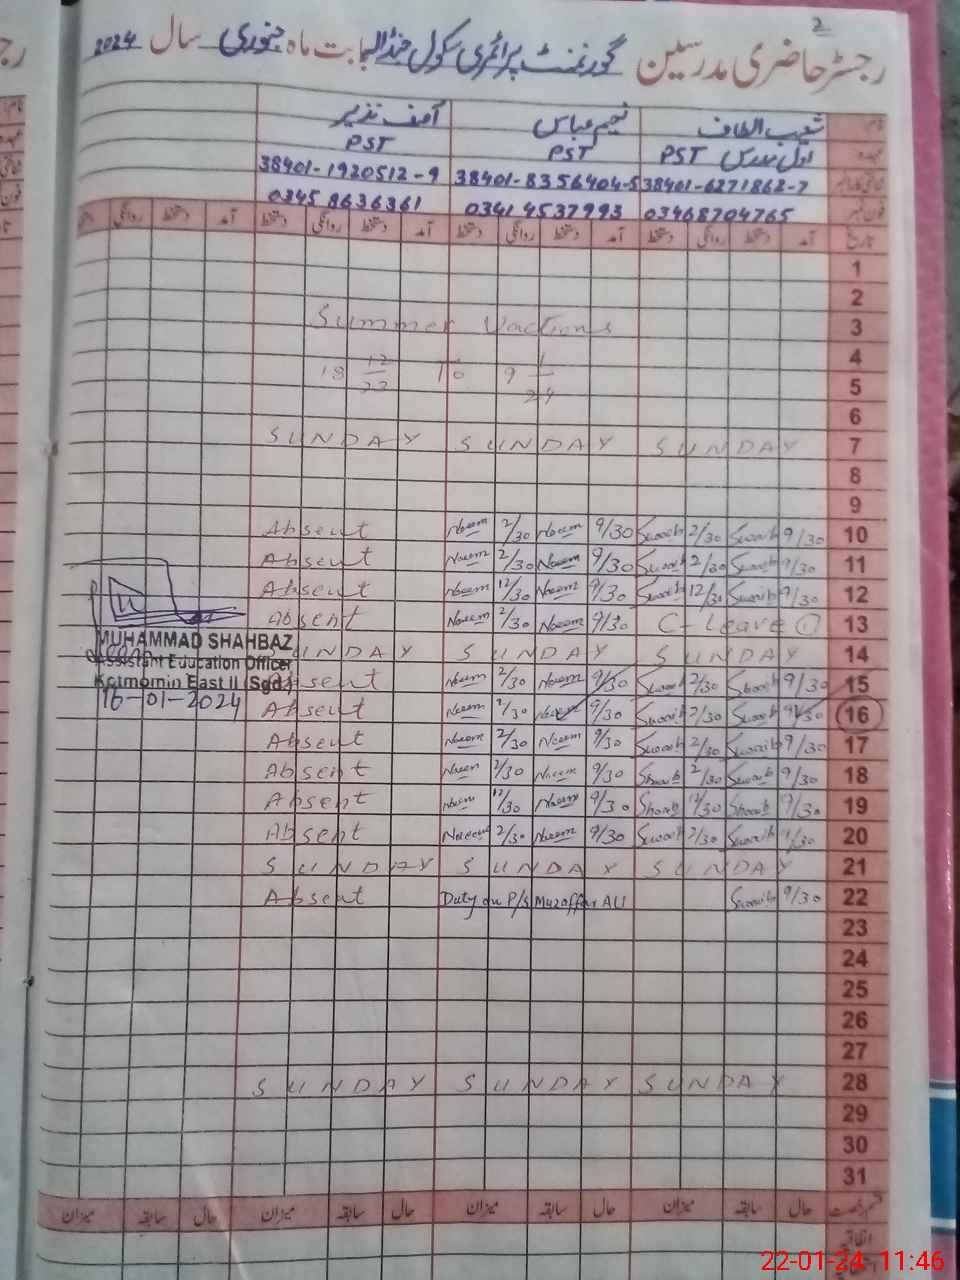 2
رجسٹر حاضری مدرسین گورنمنٹ پرائمری سکول بابت ماہ جنوری سال 2024
نام شعیب الطاف نعیم عباس آصف نذیر
عہدہ اول مدرس PST PST PST
38401-6271862-7 38401-8356404-5 38401-1920512-9
فون نمبر 03468704765 0341 4537993 0345 8636361
تاریخ آمد دستخط روانگی دستخط آمد دستخط روانگی دستخط آمد دستخط روانگی دستخط آمد دستخط روانگی دستخط
1
2
Summer Vactions 3
4
18 12/23 To 9 1/24 5
6
SUNDAY SUNDAY SUNDAY 7
8
9
Absent Naeem 2/30 Naeem 9/30 Suoaib 2/30 Suoaib 9/30 10
Absent Naeem 2/30 Naeem 9/30 Suoaib 2/30 Suoaib 9/30 11
Absent Naeem 12/30 Naeem 9/30 Suoaib 12/30 Suoaib 9/30 12
Absent Naeem 2/30 Naeem 9/30 C-Leave ① 13
MUHAMMAD SHAHBAZ
SUNDAY SUNDAY SUNDAY 14
Assistant Education Officer
Kotmomin East II (Sgd.)
Absent Naeem 2/30 Naeem 9/30 Suoaib 2/30 Shoaib 9/30 15
16-01-2024
Absent Naeem 2/30 Naeem 9/30 Suoaib 2/30 Suoaib 9/30 16
Absent Naeem 2/30 Naeem 9/30 Suoaib 2/30 Suoaib 9/30 17
Absent Naeem 2/30 Naeem 9/30 Shoaib 2/30 Suoaib 9/30 18
Absent Naeem 12/30 Naeem 9/30 Shoaib 12/30 Shoaib 9/30 19
Absent Naeem 2/30 Naeem 9/30 Suoaib 2/30 Suoaib 9/30 20
SUNDAY SUNDAY SUNDAY 21
Absent Duty on P/S Muzaffar ALI Suoaib 9/30 22
23
24
25
26
27
SUNDAY SUNDAY SUNDAY 28
29
30
31
قسم رخصت حال سابقہ میزان حال سابقہ میزان حال سابقہ میزان حال سابقہ میزان
اتفاقیہ
22-01-24 11:46